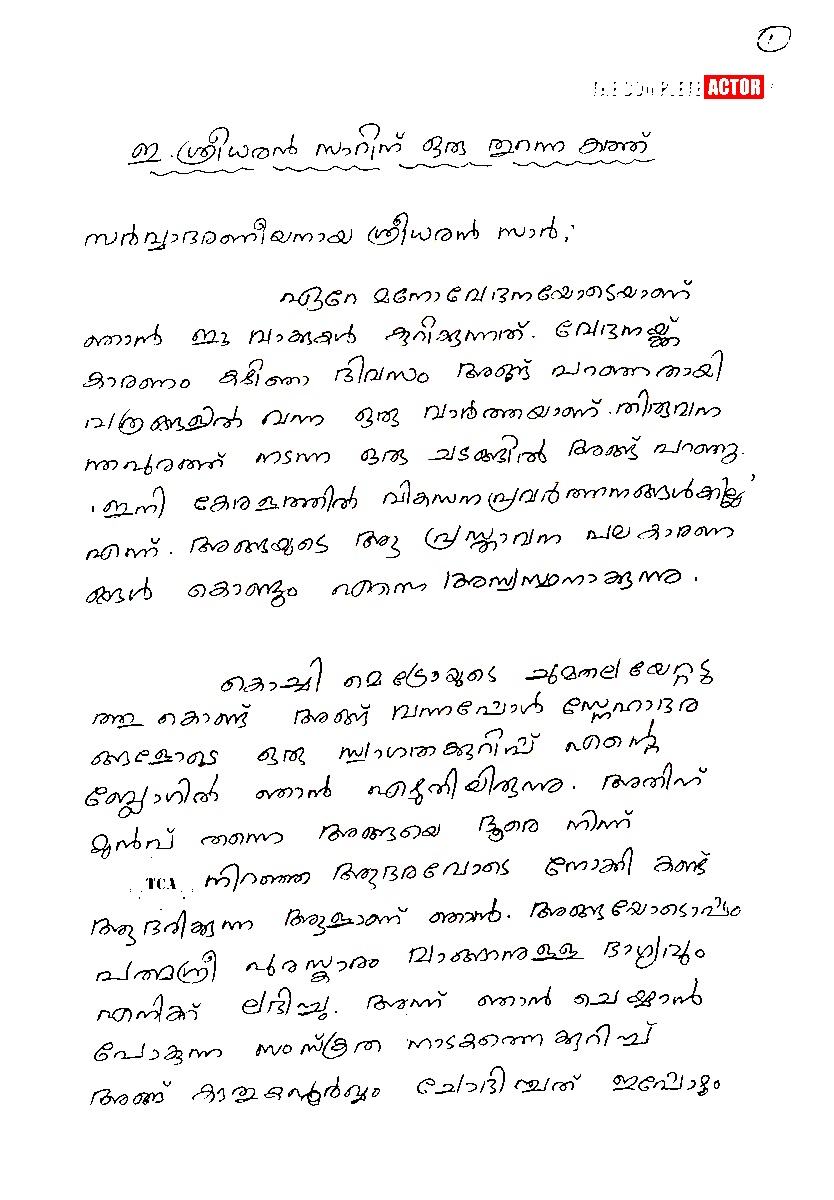 1
THE COMPLETE ACTOR
ഇ. ശ്രീധരൻ സാറിന് ഒരു തുറന്ന കത്ത്
സർവ്വാദരണീയനായ ശ്രീധരൻ സാർ,
ഏറെ മനോവേദനയോടെയാണ്
ഞാൻ ഈ വാക്കുകൾ കുറിക്കുന്നത്. വേദനയ്ക്ക്
കാരണം കഴിഞ്ഞ ദിവസം അങ്ങ് പറഞ്ഞതായി
പത്രങ്ങളിൽ വന്ന ഒരു വാർത്തയാണ്. തിരുവന
ന്തപുരത്ത് നടന്ന ഒരു ചടങ്ങിൽ അങ്ങ് പറഞ്ഞു.
'ഇനി കേരളത്തിൽ വികസനപ്രവർത്തനങ്ങൾക്കില്ല'
എന്ന്. അങ്ങയുടെ ആ പ്രസ്താവന പല കാരണ
ങ്ങൾ കൊണ്ടും എന്നെ അസ്വസ്ഥനാക്കുന്നു.
കൊച്ചി മെട്രോയുടെ ചുമതലയേറ്റെടു
ത്തു കൊണ്ട് അങ്ങ് വന്നപ്പോൾ സ്നേഹാദര
ങ്ങളോടെ ഒരു സ്വാഗതക്കുറിപ്പ് എന്റെ
ബ്ലോഗിൽ ഞാൻ എഴുതിയിരുന്നു. അതിന്
മുൻപ് തന്നെ അങ്ങയെ ദൂരെ നിന്ന്
TCA നിറഞ്ഞ ആദരവോടെ നോക്കി കണ്ട്
ആദരിക്കുന്ന ആളാണ് ഞാൻ. അങ്ങയോടൊപ്പം
പത്മശ്രീ പുരസ്കാരം വാങ്ങാനുള്ള ഭാഗ്യവും
എനിക്ക് ലഭിച്ചു. അന്ന് ഞാൻ ചെയ്യാൻ
പോകുന്ന സംസ്കൃത നാടകത്തെക്കുറിച്ച്
അങ്ങ് കൗതുകപൂർവ്വം ചോദിച്ചത് ഇപ്പോഴും